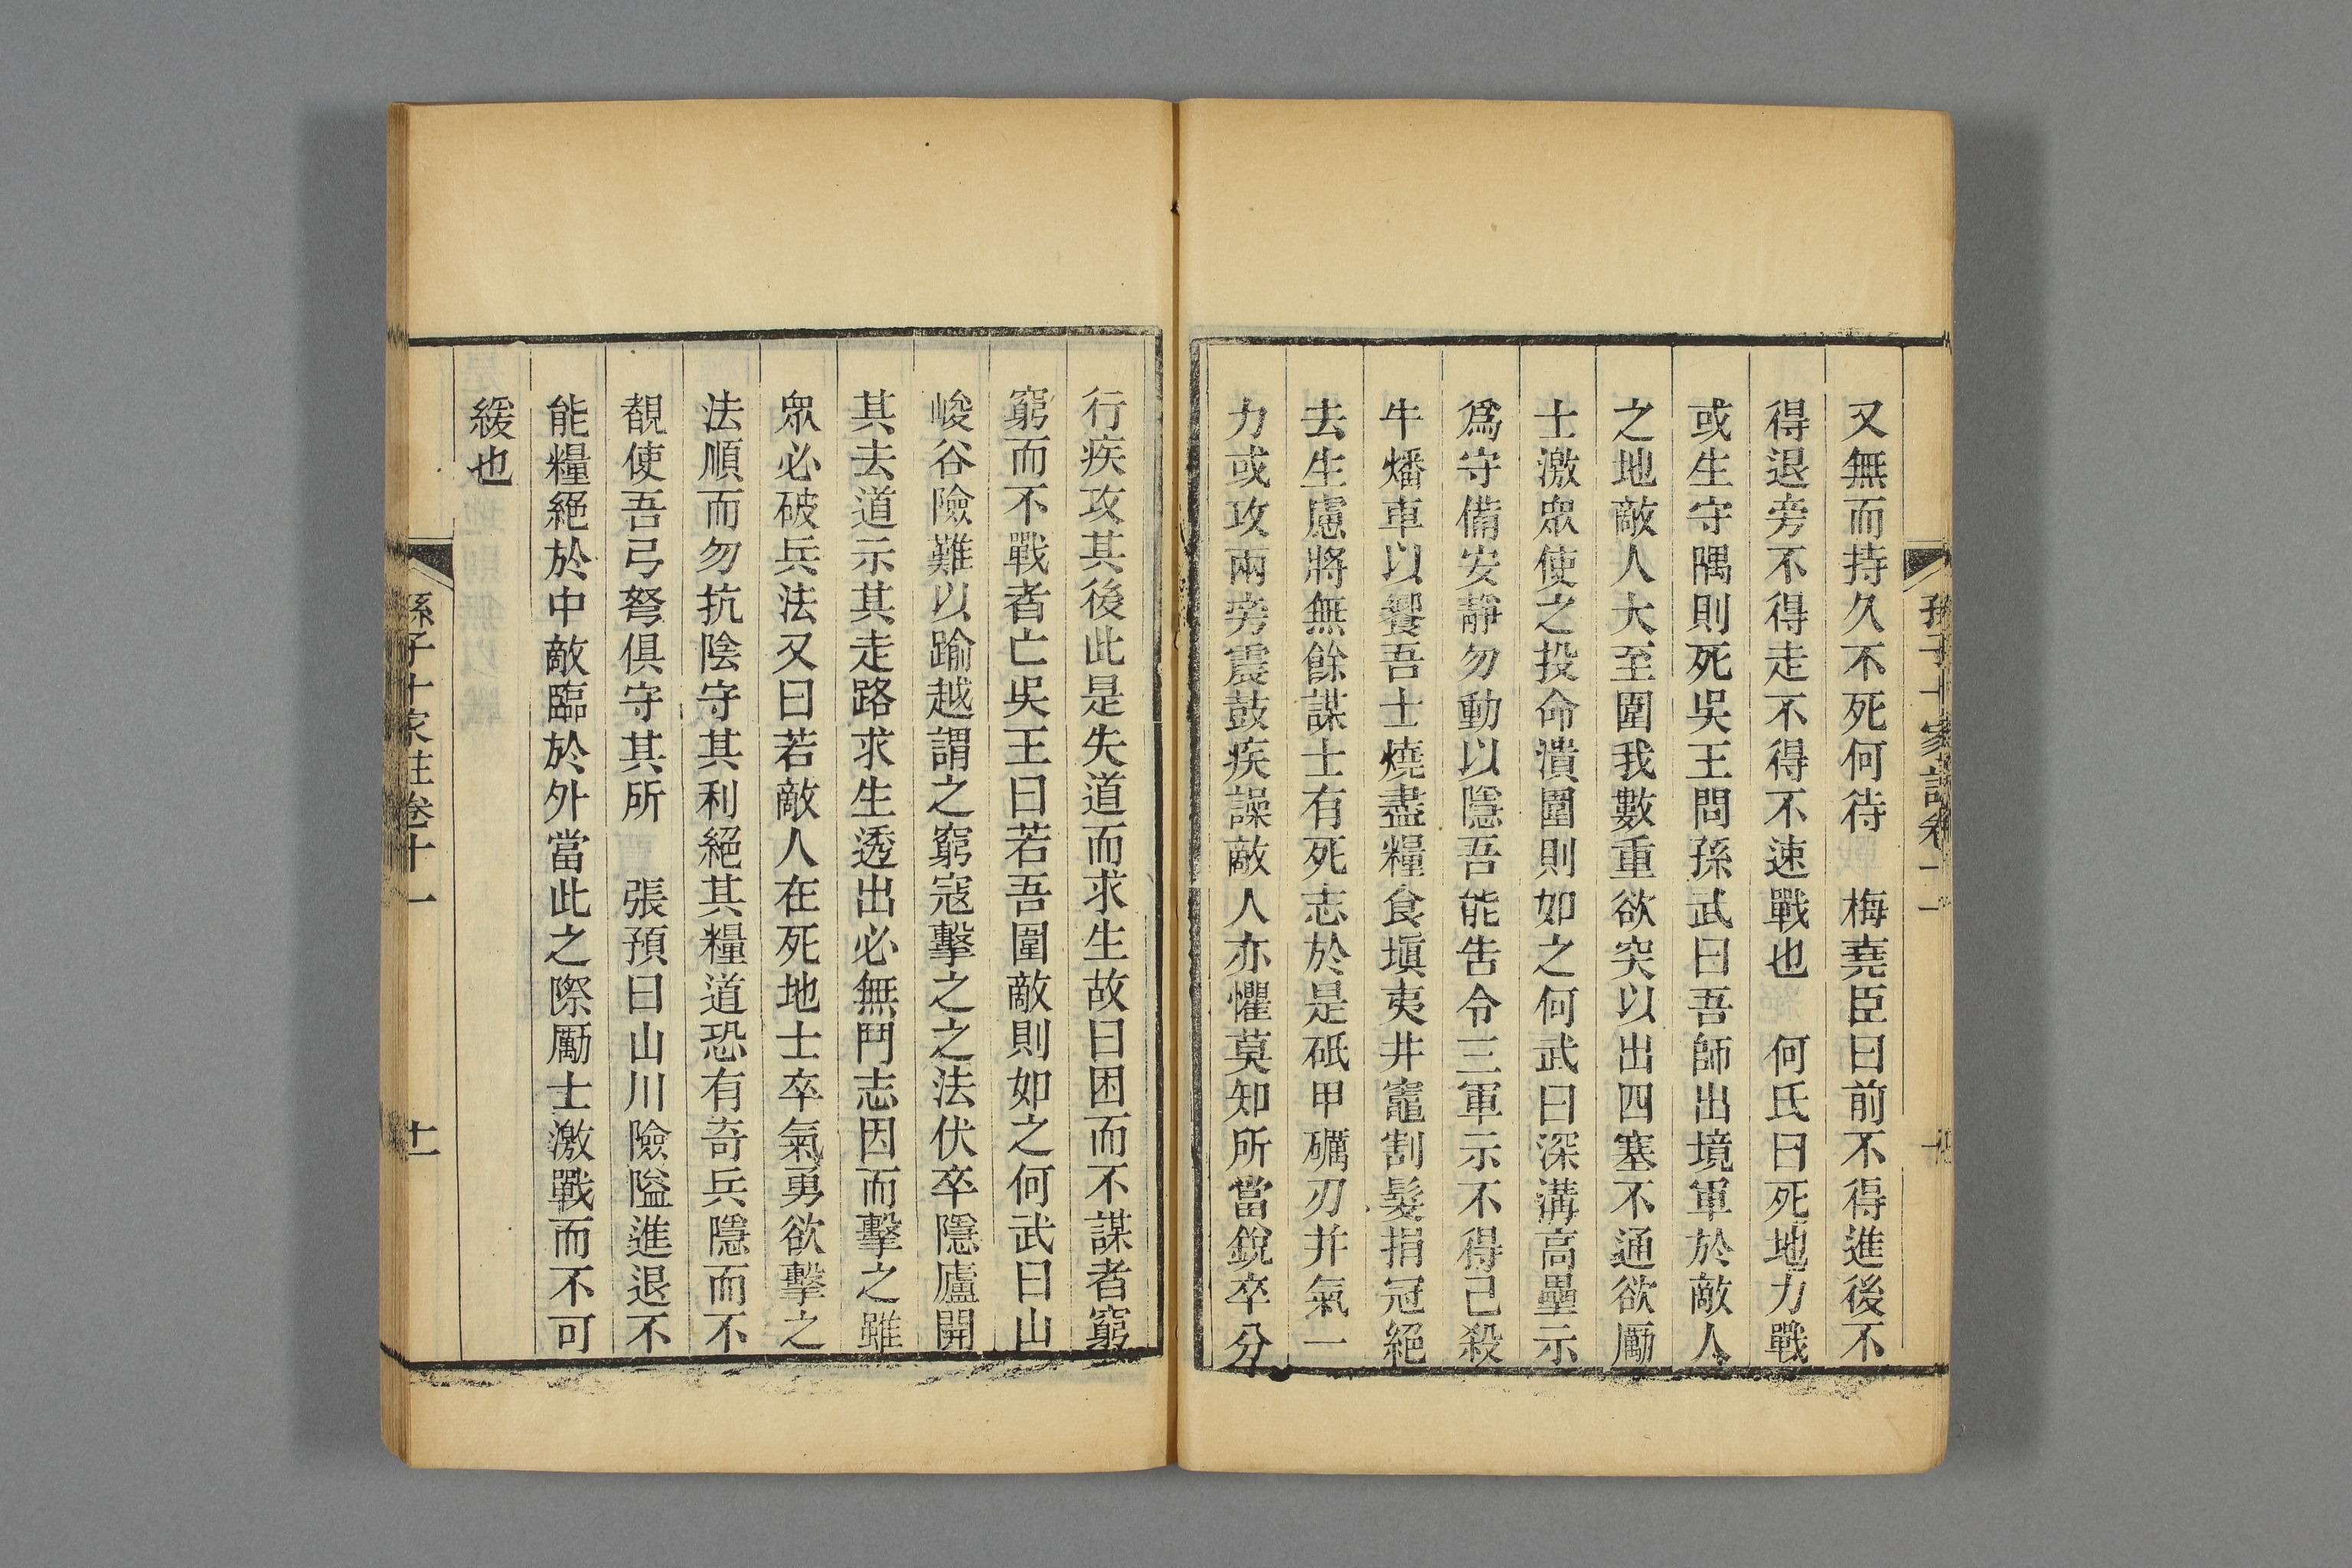 又無而持久不死何待　梅堯臣曰前不得進後不
得退旁不得走不得不速戰也　何氏曰死地力戰
或生守隅則死吳王問孫武曰吾師出境軍於敵人
之地敵人大至圍我數重欲突以出四塞不通欲勵
士激眾使之投命潰圍則如之何武曰深溝高壘示
爲守備安靜勿動以隱吾能告令三軍示不得已殺
牛燔車以饗吾士燒盡糧食塡夷井竈割髮捐冠絕
去生慮將無餘謀士有死志於是砥甲礪刃并氣一
力或攻兩旁震鼓疾譟敵人亦懼莫知所當銳卒分
行疾攻其後此是失道而求生故曰困而不謀者窮
窮而不戰者亡吳王曰若吾圍敵則如之何武曰山
峻谷險難以踰越謂之窮寇擊之之法伏卒隱廬開
其去道示其走路求生透出必無鬥志因而擊之雖
眾必破兵法又曰若敵人在死地士卒氣勇欲擊之
法順而勿抗陰守其利絕其糧道恐有奇兵隱而不
覩使吾弓弩俱守其所　張預曰山川險隘進退不
能糧絕於中敵臨於外當此之際勵士激戰而不可
緩也
孫子十家註卷十一
十一